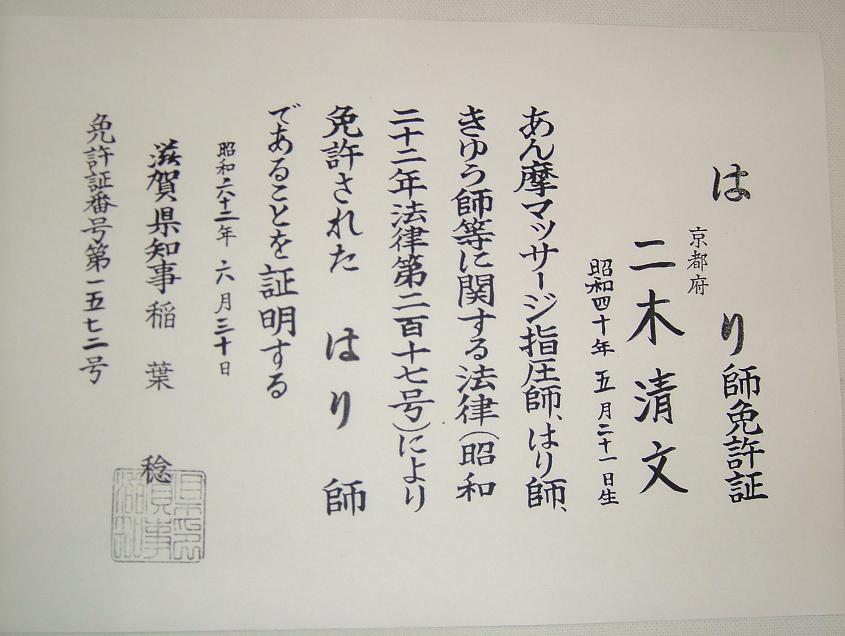 はり師免許証
京都府
二木清文
昭和四十年五月二十一日生
あん摩マッサージ指圧師、はり師、
きゆう師等に関する法律(昭和
二十二年法律第二百十七号)により
免許された はり師
であることを証明する
昭和六十二年六月三十日
滋賀県知事稲葉稔
免許証番号第一五七二号